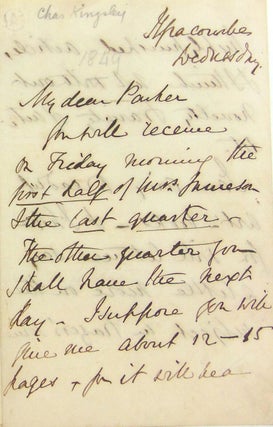 Chas Kingsley
1849
Ilfracombe
Wednesday
My dear Parker
You will receive
on Friday morning the
first half of Mrs Jameson
& the last quarter.
The other quarter you
shall have the next
day - I suppose you will
give me about 12-15
pages & for it will be a